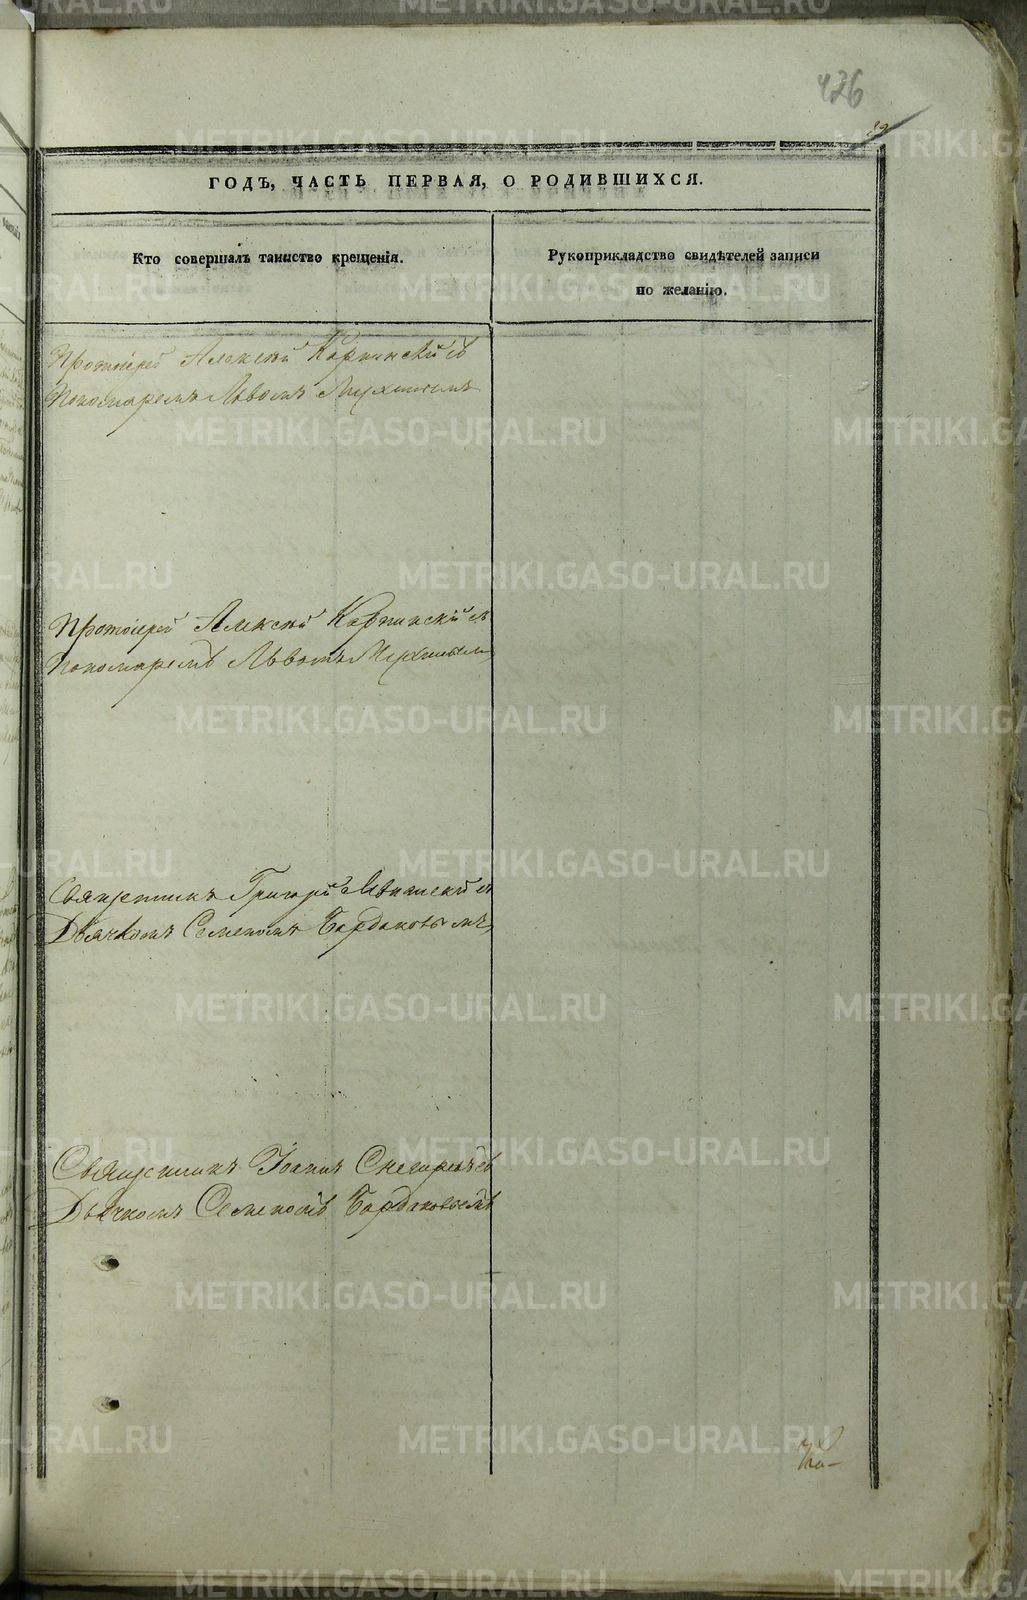 426
29
ГОДЪ, ЧАСТЬ ПЕРВАЯ, О РОДИВШИХСЯ.
Кто совершалъ таинство крещенія.
Рукоприкладство свидѣтелей записи
по желанію.
Протоіерей Алексѣй Карпинскій съ
Пономаремъ Львомъ Мухинымъ
Протоіерей Алексѣй Карпинскій съ
Пономаремъ Львомъ Мухинымъ
Священникъ Григорій съ
Дьячкомъ Семеномъ Бардаковымъ
Священникъ Іоаннъ Снегиревъ съ
Дьячкомъ Семеномъ Бардаковымъ
METRIKI.GASO-URAL.RU